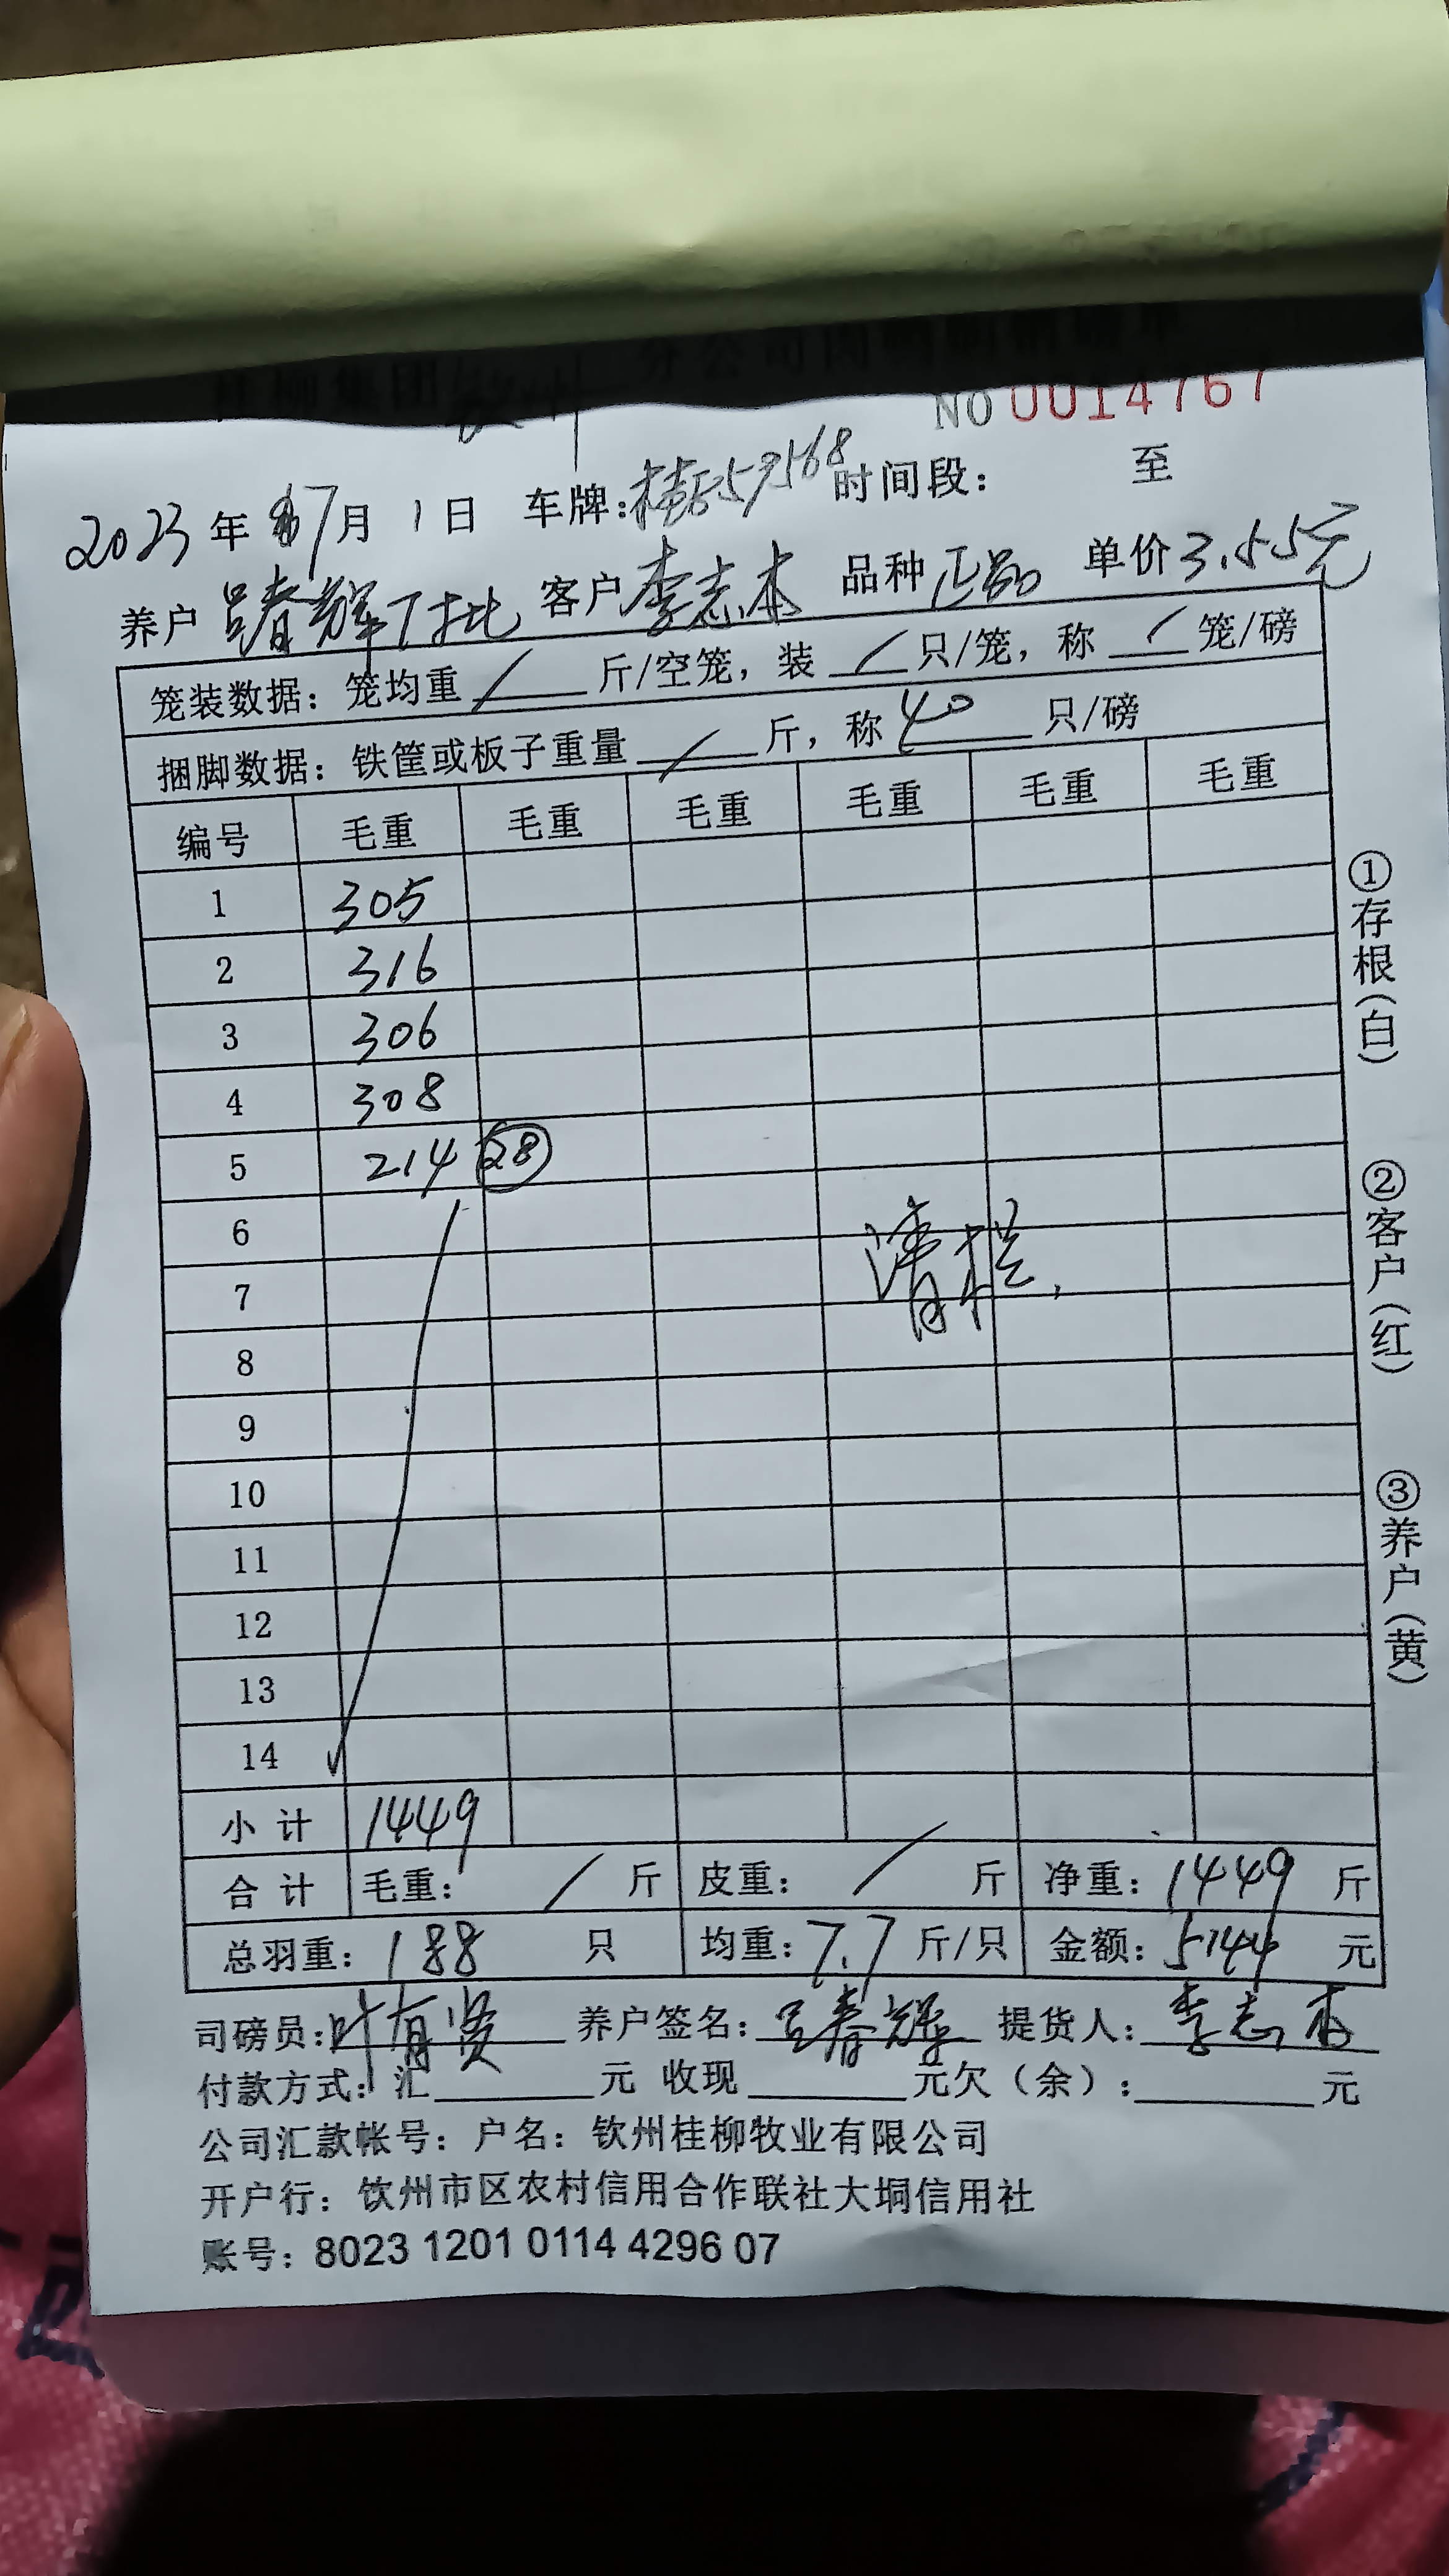 桂柳集团钦州分公司肉鸭购销磅单
NO 0014767
2023年7月1日 车牌:桂E59568 时间段: 至
养户 吕春辉下批 客户 李志本 品种 正品 单价 3.55元
笼装数据: 笼均重 / 斤/空笼, 装 / 只/笼, 称 / 笼/磅
捆脚数据: 铁筐或板子重量 / 斤, 称 40 只/磅
编号 毛重 毛重 毛重 毛重 毛重 毛重
1 305
2 316
3 306
4 308
5 214 28
6
7 清栏.
8
9
10
11
12
13
14
小计 1449
合计 毛重: / 斤 皮重: / 斤 净重: 1449 斤
总羽重: 188 只 均重: 7.7 斤/只 金额: 5144 元
司磅员: 叶有贤 养户签名: 吕春辉 提货人: 李志本
付款方式: 汇 元 收现 元欠(余): 元
公司汇款帐号: 户名: 钦州桂柳牧业有限公司
开户行: 钦州市区农村信用合作联社大垌信用社
账号: 8023 1201 0114 4296 07
①存根(白)
②客户(红)
③养户(黄)